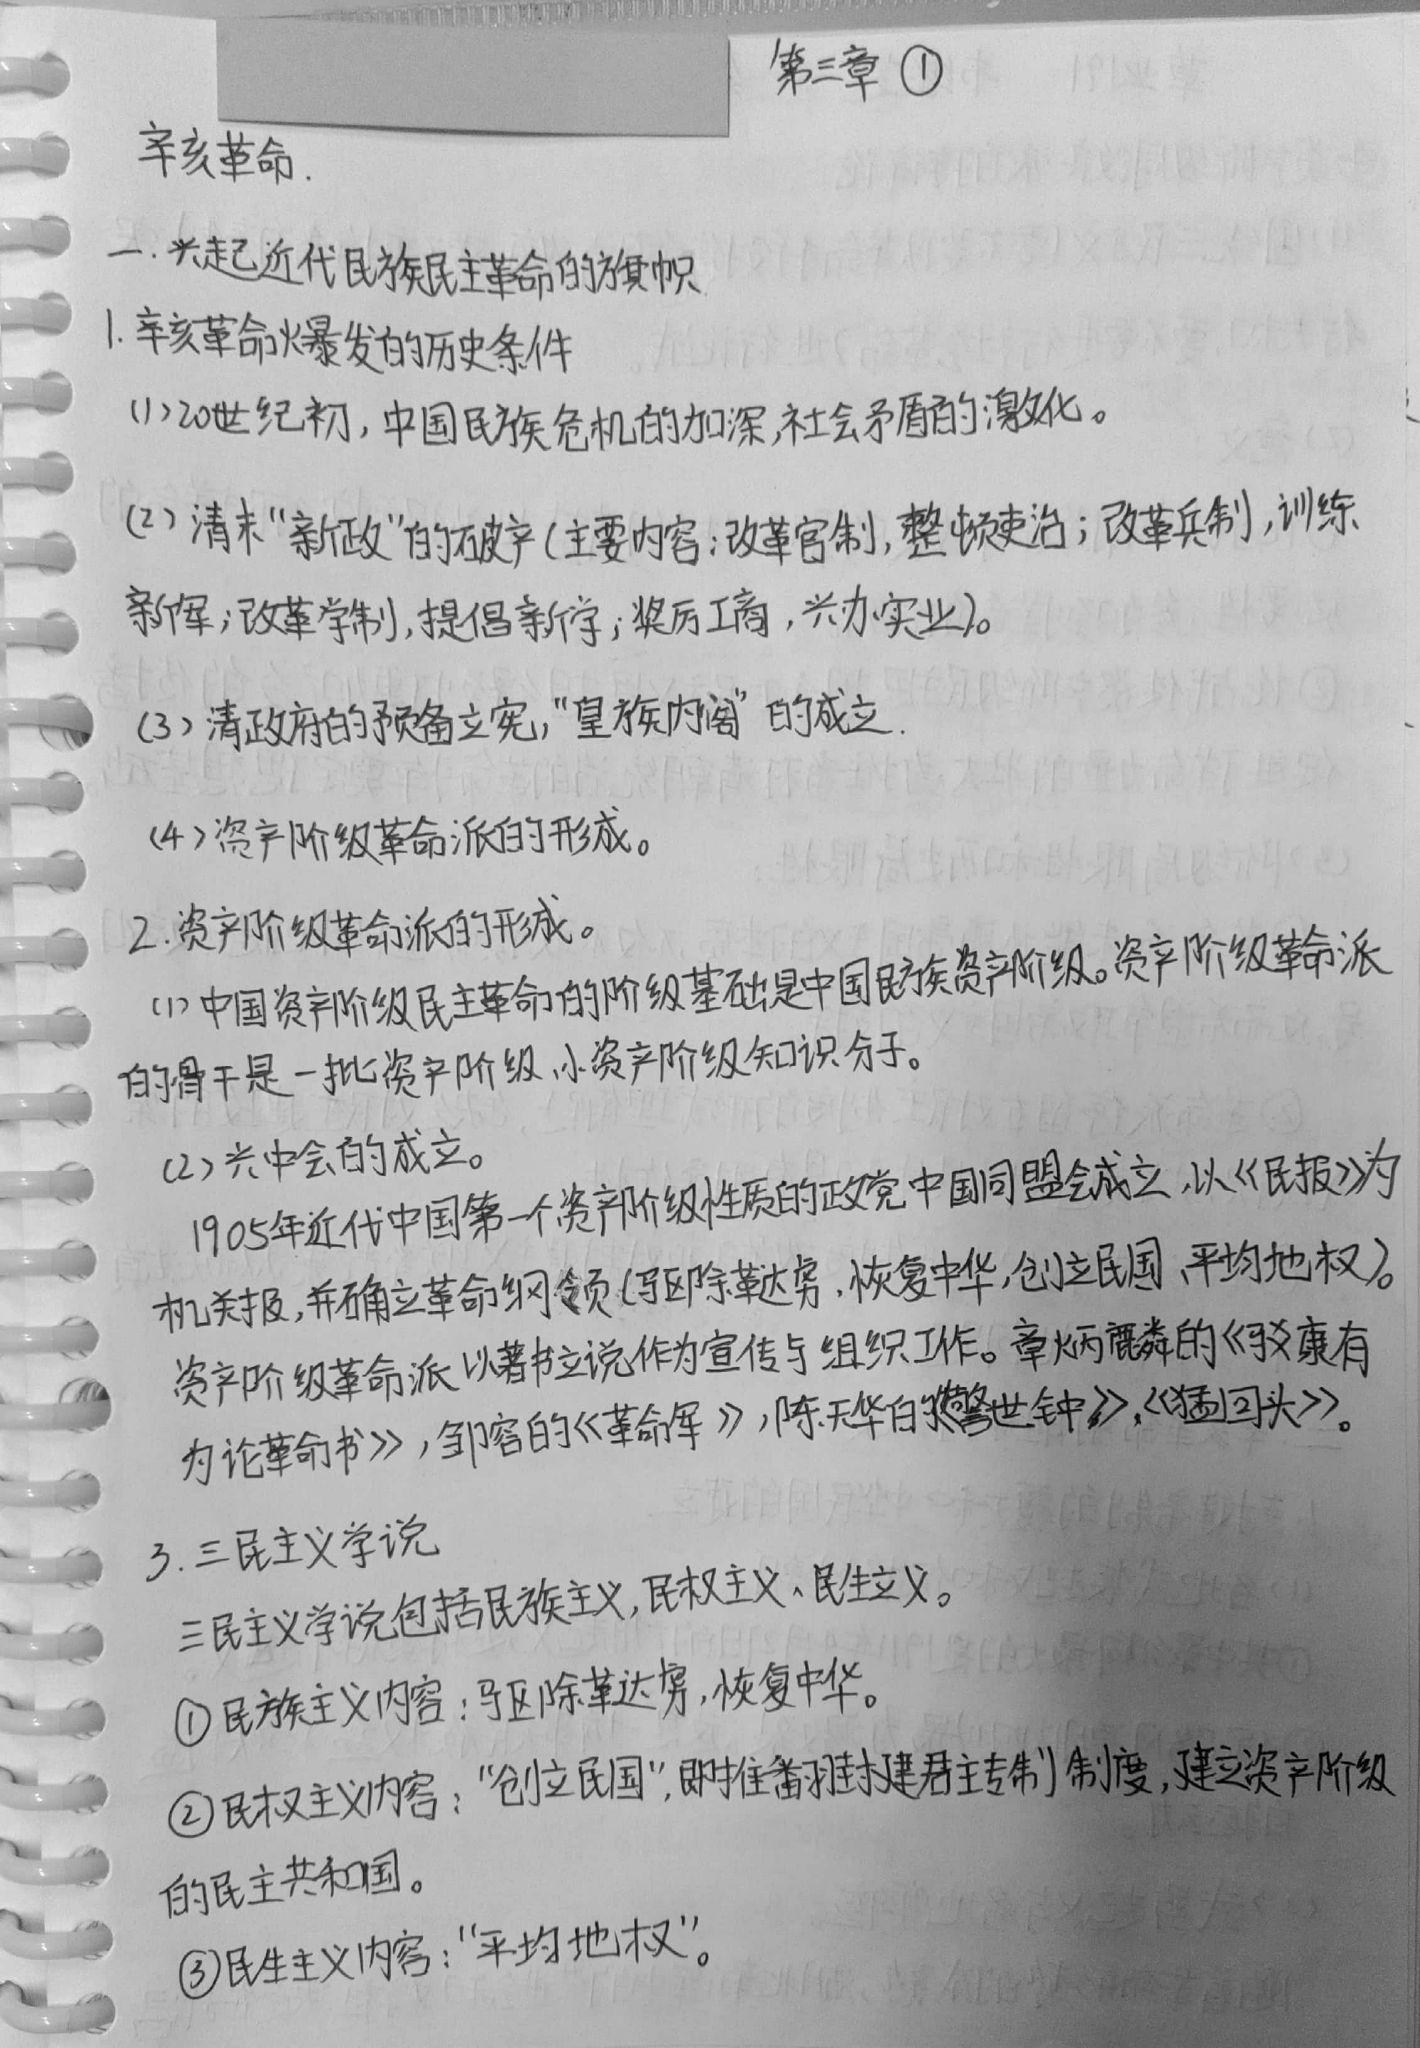 第三章 ①
辛亥革命.
一.兴起近代民族民主革命的旗帜
1.辛亥革命爆发的历史条件
(1)20世纪初,中国民族危机的加深,社会矛盾的激化。
(2)清末“新政”的破产(主要内容:改革官制,整顿吏治;改革兵制,训练
新军;改革学制,提倡新学;奖厉工商,兴办实业)。
(3)清政府的预备立宪,“皇族内阁”的成立.
(4)资产阶级革命派的形成。
2.资产阶级革命派的形成。
(1)中国资产阶级民主革命的阶级基础是中国民族资产阶级。资产阶级革命派
的骨干是一批资产阶级、小资产阶级知识分子。
(2)兴中会的成立。
1905年近代中国第一个资产阶级性质的政党中国同盟会成立、以《民报》为
机关报,并确立革命纲领(驱除鞑虏、恢复中华,创立民国、平均地权)。
资产阶级革命派以著书立说作为宣传与组织工作。章炳麟的《驳康有
为论革命书》,邹容的《革命军》,陈天华的《警世钟》,《猛回头》。
3.三民主义学说
三民主义学说包括民族主义,民权主义、民生主义。
①民族主义内容:驱除鞑虏,恢复中华。
②民权主义内容:“创立民国”,即推翻封建君主专制制度,建立资产阶级
的民主共和国。
③民生主义内容:“平均地权”。